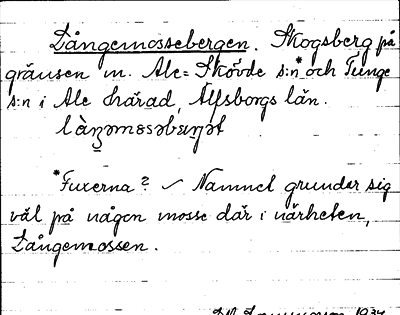 Långemossebergen. Skogsberg på
gränsen m. Ale=Skövde s:n* och Tunge
s:n i Ale härad, Älfsborgs län.
*Fuxerna? ✓ Namnet grundar sig
väl på någon mosse där i närheten,
Långemossen.
1934